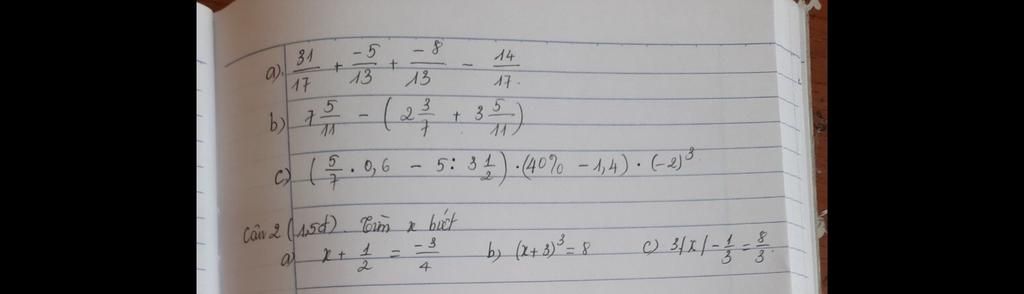 a). 31/17 + -5/13 + -8/13 - 14/17.
b) 7 5/11 - (2 3/7 + 3 5/11)
c) (5/7 . 0,6 - 5 : 3 1/2) . (40% - 1,4) . (-2)³
Câu 2 (1,5đ). Tìm x biết
a) x + 1/2 = -3/4 b) (x+3)³ = 8 c) 3|x| - 1/3 = 8/3.